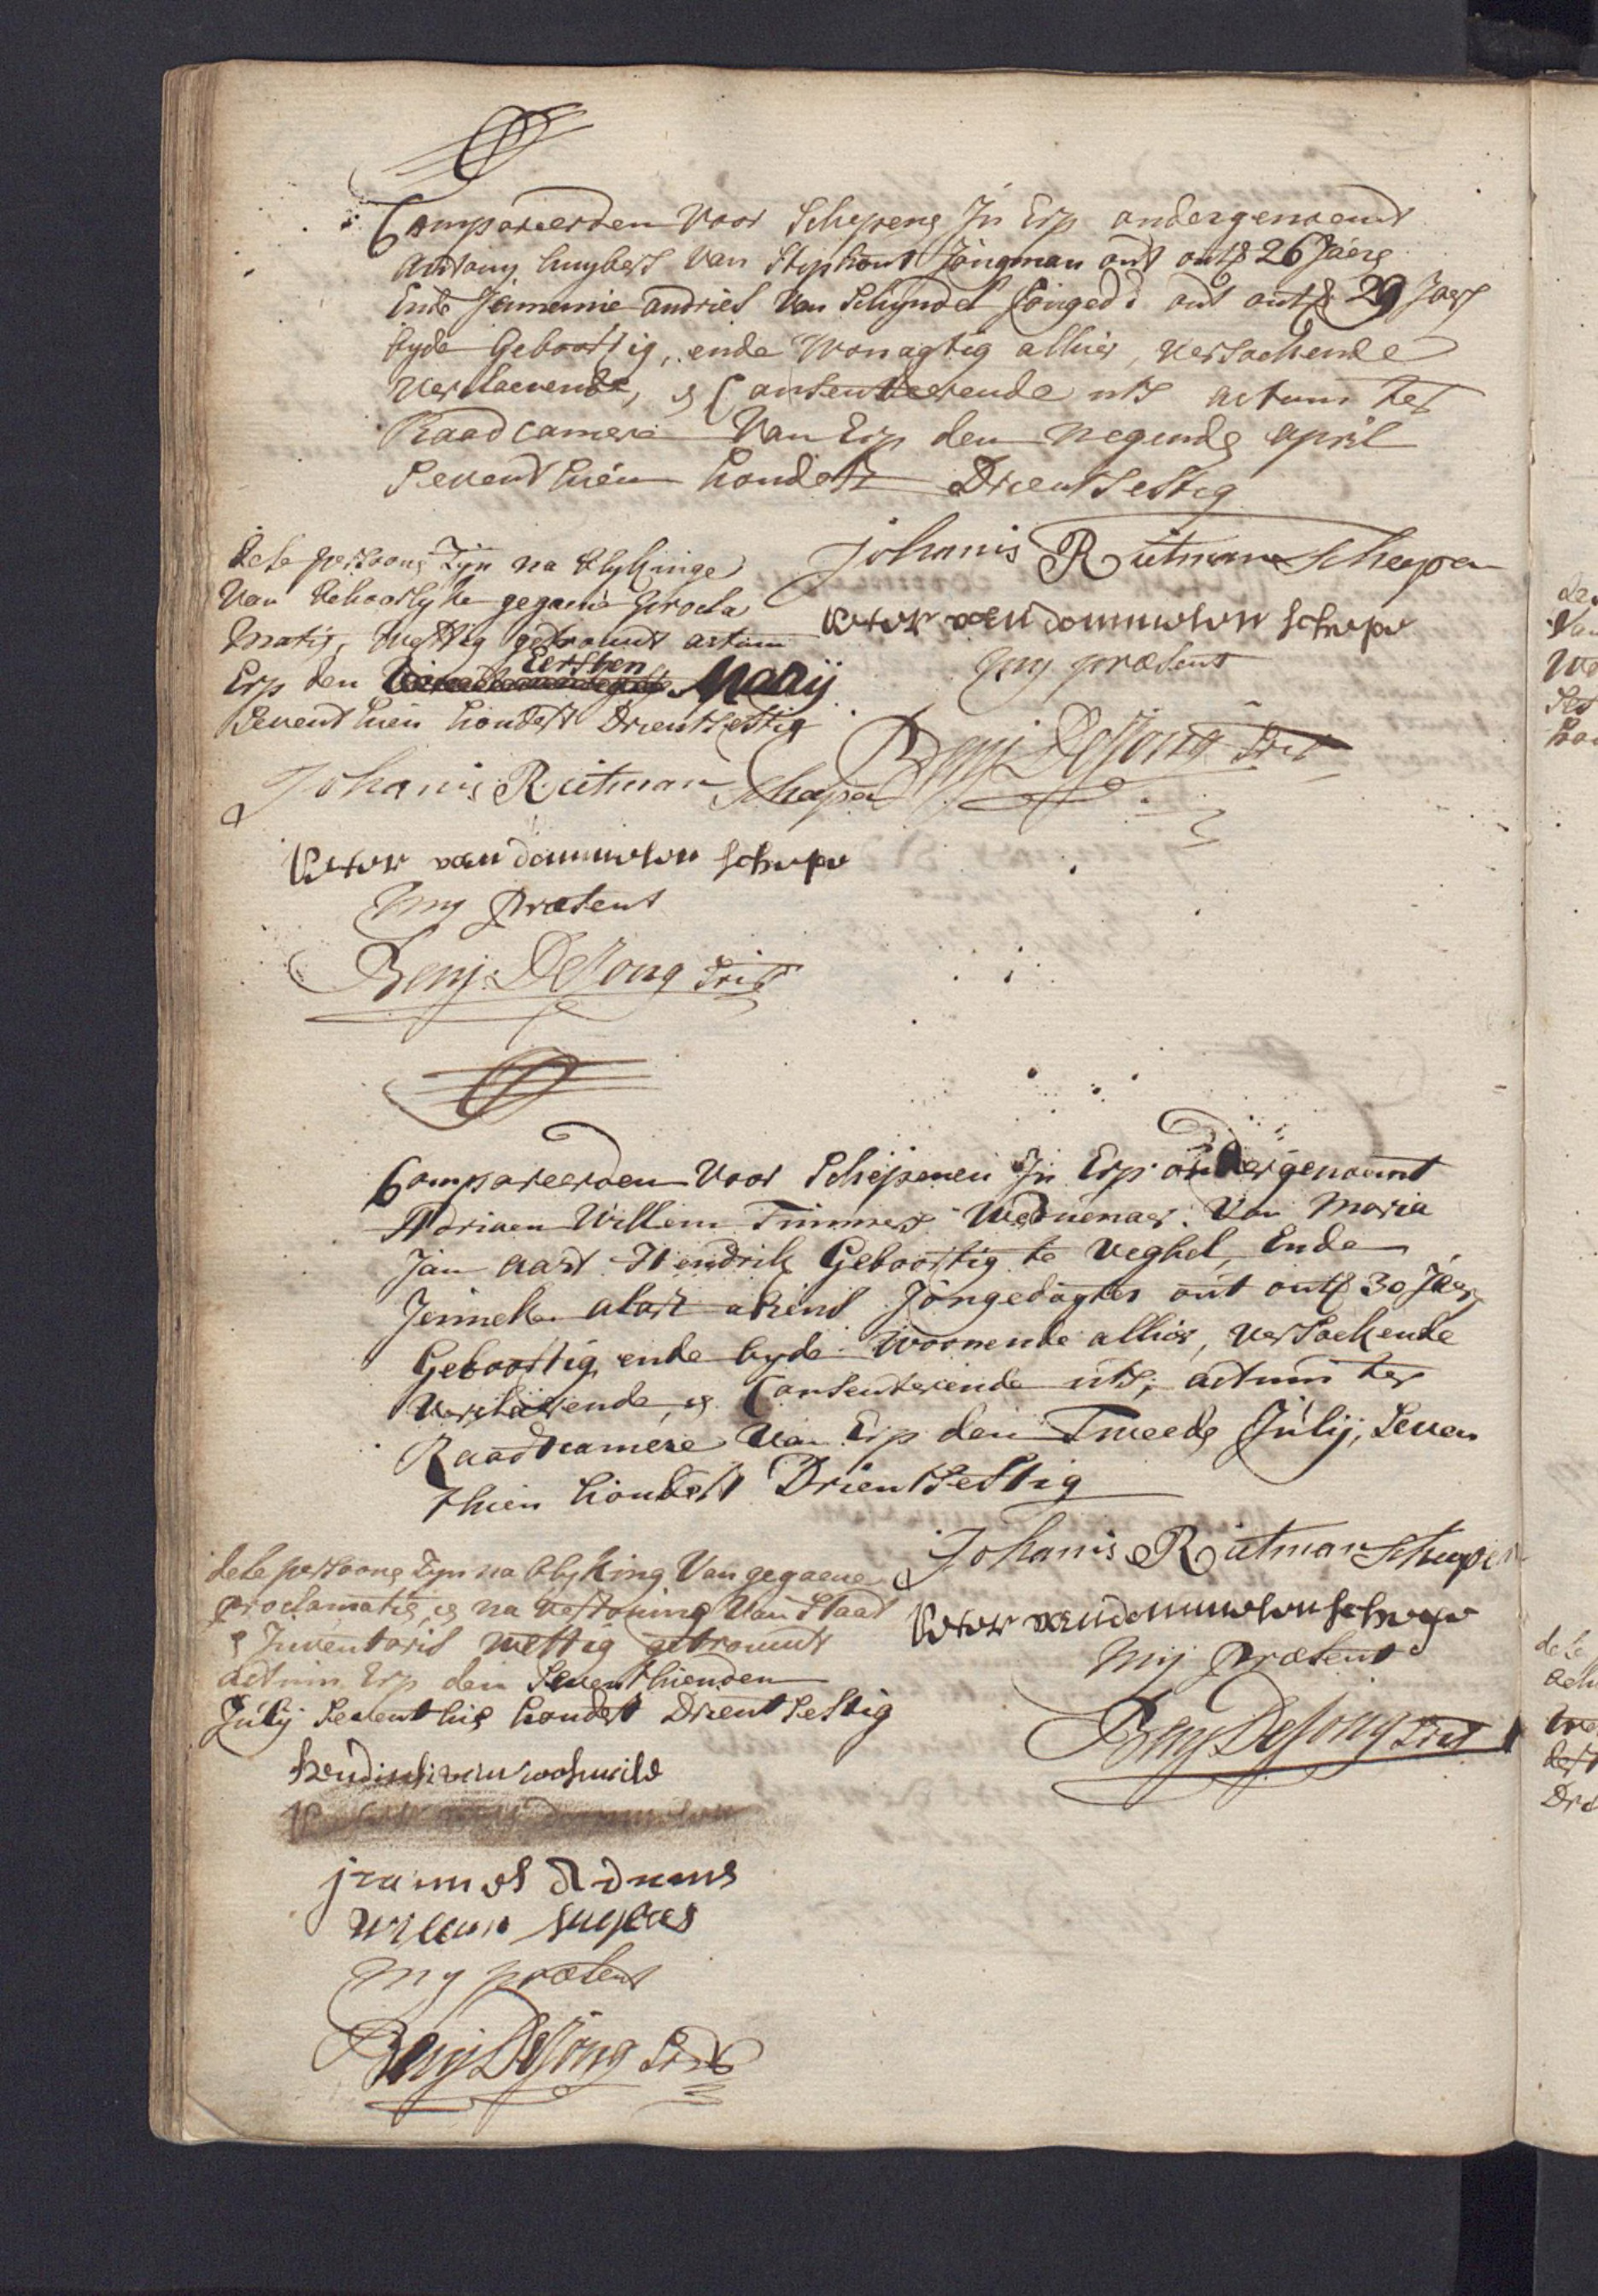 Compareerden Voor Schepens In Erp ondergenoemt
Antony huyberts Van Stiphout Jongman out ontr 26 Jaere
Ende Jennemie andries Van Schyndel Jonged: out ontr 29 Jaer
byde Geboortig, ende Wonagtig alhier, versoekende
Verclaerende, & Consenteerende uts actum ter
Raadcamere Van Erp den negende april
Seventhien hondert Drientsestig
Johanis Rutman Schepen
van dommelen schepe
my present
Benj DeJong Scrt
dese persoons Zyn na blykinge
Van behoorlyke gegaene procla
matis, Wettig getrouwt actum
Erp den Eersten Maij
Seventhien hondert Drientsestig
Johanis Rutman Schepen
van dommelen schepe
my present
Benj. DeJong Scrt
Compareerden Voor Schepenen In Erp ondergenoemt
Adriaen Willem Timmers Weduenaer Van Maria
Jan Aart Hendriks Geboortig te Veghel, Ende
Jenneke alart arens Jongedogter out ontr 30 Jaer
Geboortig ende byde Woonende alhier, versoekende
Verclaerende, & Consenterende uts, actum ter
Raadcamere Van Erp den Tweede Julij, Seven
thien hondert Drientsestig
Johanis Rutman Schepen
van dommelen schepe
mij present
Benj DeJong Scrt
dese persoons Zyn na blyking Van gegaene
proclamatis, & na Vertoning Van Staad
& Inventaris wettig getrouwt
actum Erp den Seventhienden
Julij Seventhie hondert Drientsestig
Willem huybers
my present
Benj DeJong Scrt